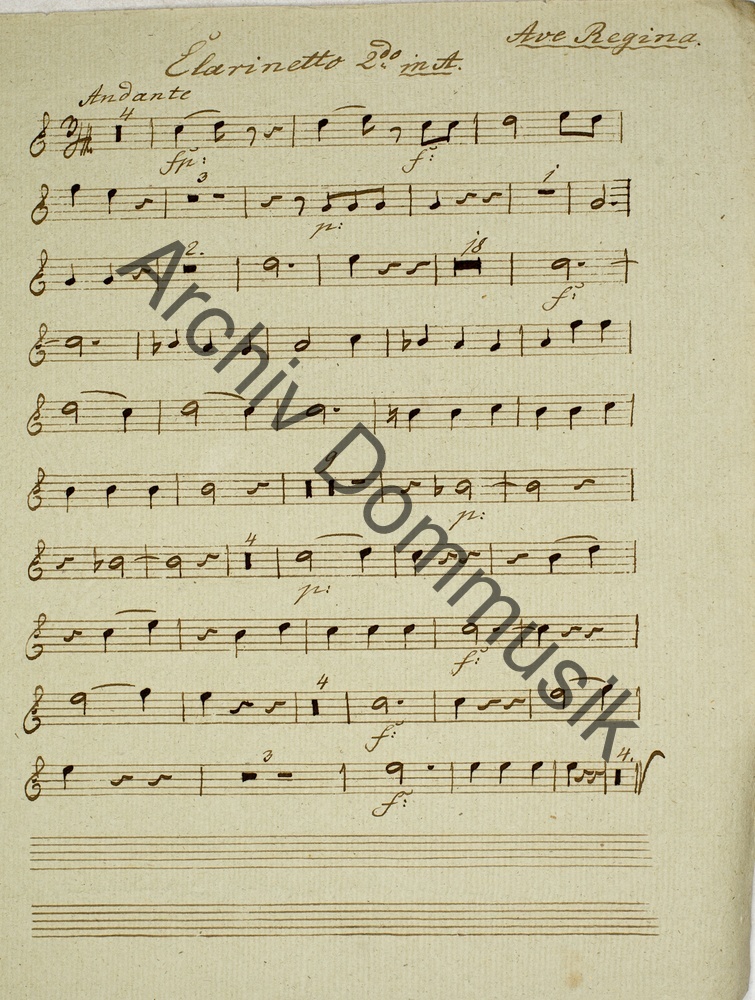 Ave Regina.
Clarinetto 2do in A.
Andante
4
fp: f:
3 1
p:
2. 18
f:
9
p:
4
p:
f:
4
f:
3 4.
f:
Archiv Dommusik